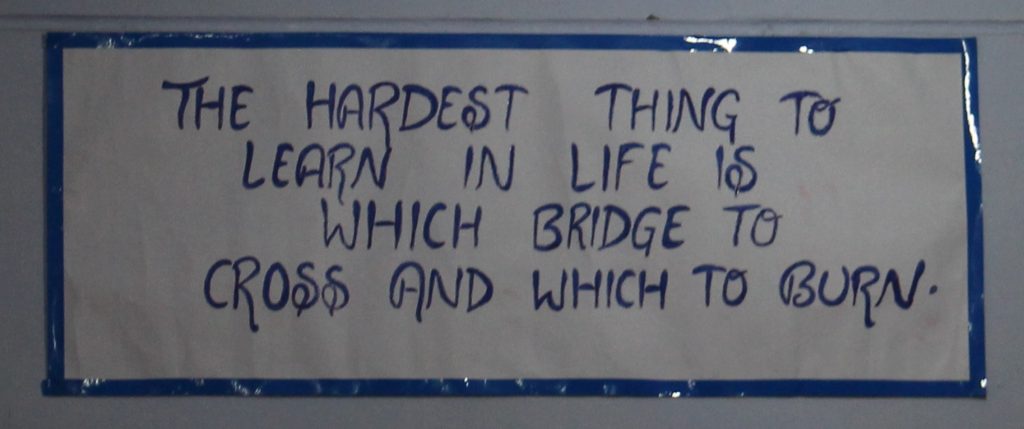 THE HARDEST THING TO
LEARN IN LIFE IS
WHICH BRIDGE TO
CROSS AND WHICH TO BURN.